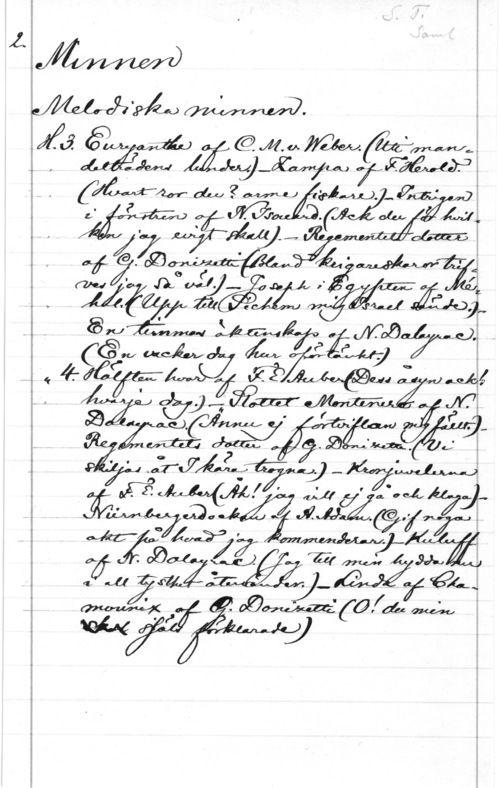 S. T.
Saml
2.
Minnen
Melodiska minnen.
H. 3. Euryanthe af C. M. v. Weber. (Uti man=
delträdens lunder.) – Zampa af F. Herold.
(Hvart ror du? arme fiskare.) – Intrigen
i fönstren af N. Isouard. (Ack du för hvil=
ken jag evigt skall). – Regementets dotter
af G. Donizetti (Bland krigareskaror trif=
ves jag så väl.) – Joseph i Egypten af Mé=
hul. (Upp till Sichem mig Israel sände.) –
En timmas äktenskap af N. Dalayrac.
(En vacker dag hur oförtänkt.)
" 4. Hälften hvar af F. E. Auber (Dess åsyn ack!
hvarje dag.) – Slottet Montenero af N.
Dalayrac (Ännu ej förtviflan mig fällt.) –
Regementets dotter af G. Donizetti. (Vi
skiljas åt I kära trogna.) – Kronjuvelerna
af F. E. Auber (Åh! jag vill ej gå och klaga) –
Nürnbergerdockan af A. Adam. (Gif noga
akt på hvad jag kommenderar.) – Kuluff
af N. Dalayrac (Jag till min hydda nu
i all tysthet återvänder.) – Linda af Cha=
mounix af G. Donizetti (O! du min
själs förklarade)